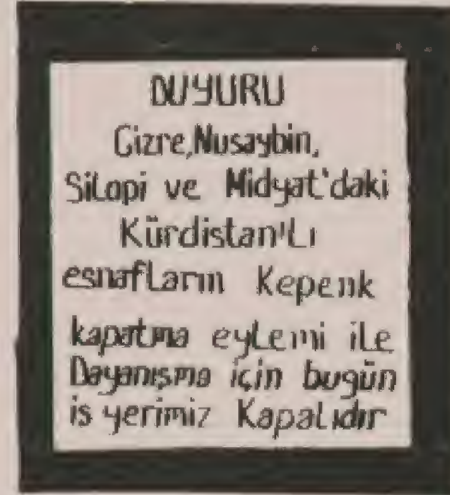 DUYURU
Cizre,Nusaybin,
Silopi ve Midyat'daki
Kürdistan'lı
esnafların Kepenk
kapatma eylemi ile
Dayanışma için bugün
is yerimiz Kapalıdır